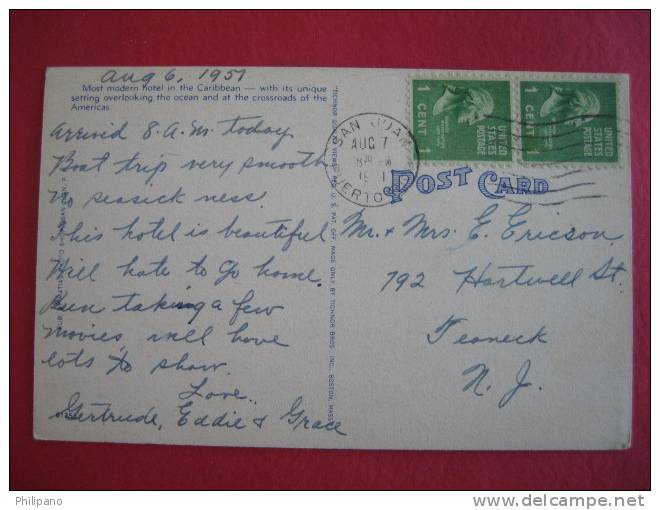 Aug 6, 1951
Most modern hotel in the Caribbean — with its unique
setting overlooking the ocean and at the crossroads of the
Americas.
Arrivid 8. A.M. today
Boat trip very smooth
no seasick ness.
This hotel is beautiful
Will hate to go home.
Been taking a few
movies will have
lots to show.
Love,
Gertrude, Eddie & Grace
UNITED
STATES
POSTAGE
1 CENT
UNITED
STATES
POSTAGE
1 CENT
SAN JUAN
AUG 7
PUERTO
POST CARD
Mr. & Mrs. E. Ericson.
792 Hartwell St.
Teaneck
N. J.
MADE ONLY BY TICHNOR BROS. INC., BOSTON, MASS.
Philipano
www.delcampe.net